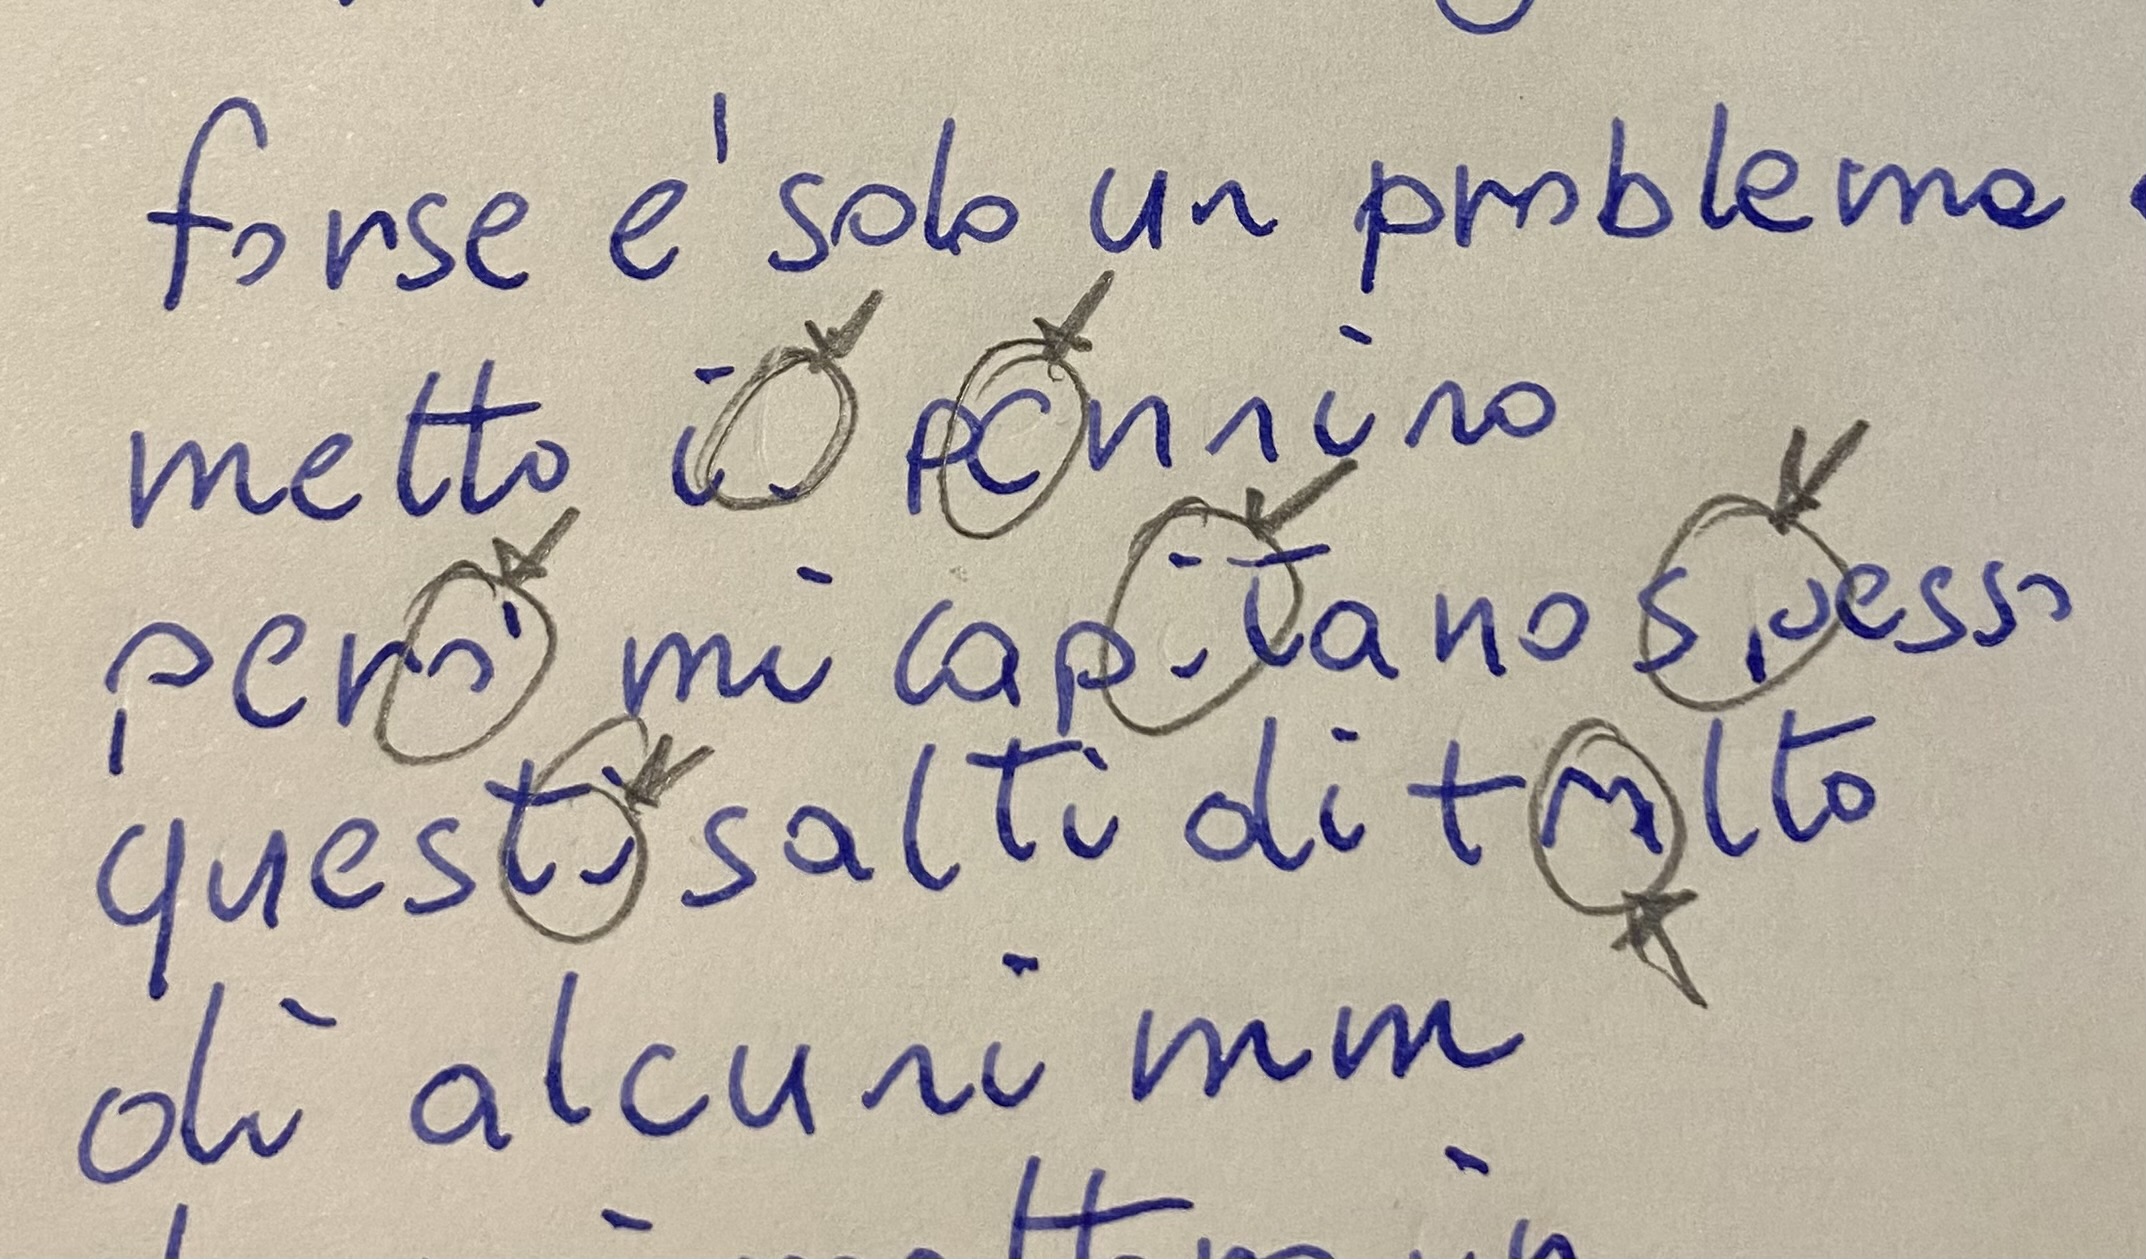 forse e' solo un problema
metto il pennino
pero' mi capitano spesso
questi salti di tratto
di alcuni mm